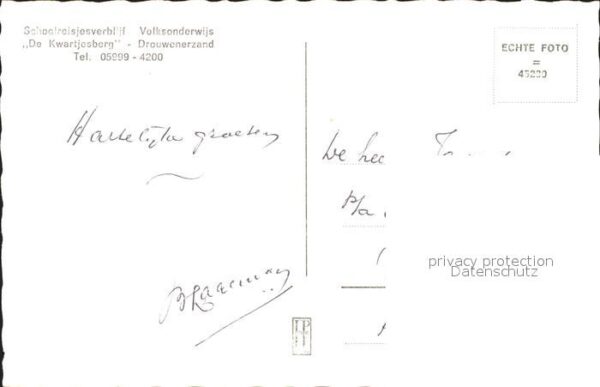 Schoolreisjesverblijf Volksonderwijs
„De Kwartjesberg" - Drouwenerzand
Tel. 05999 - 4200
ECHTE FOTO
=
Hartelijke groeten
De heer
P/a
privacy protection
Datenschutz